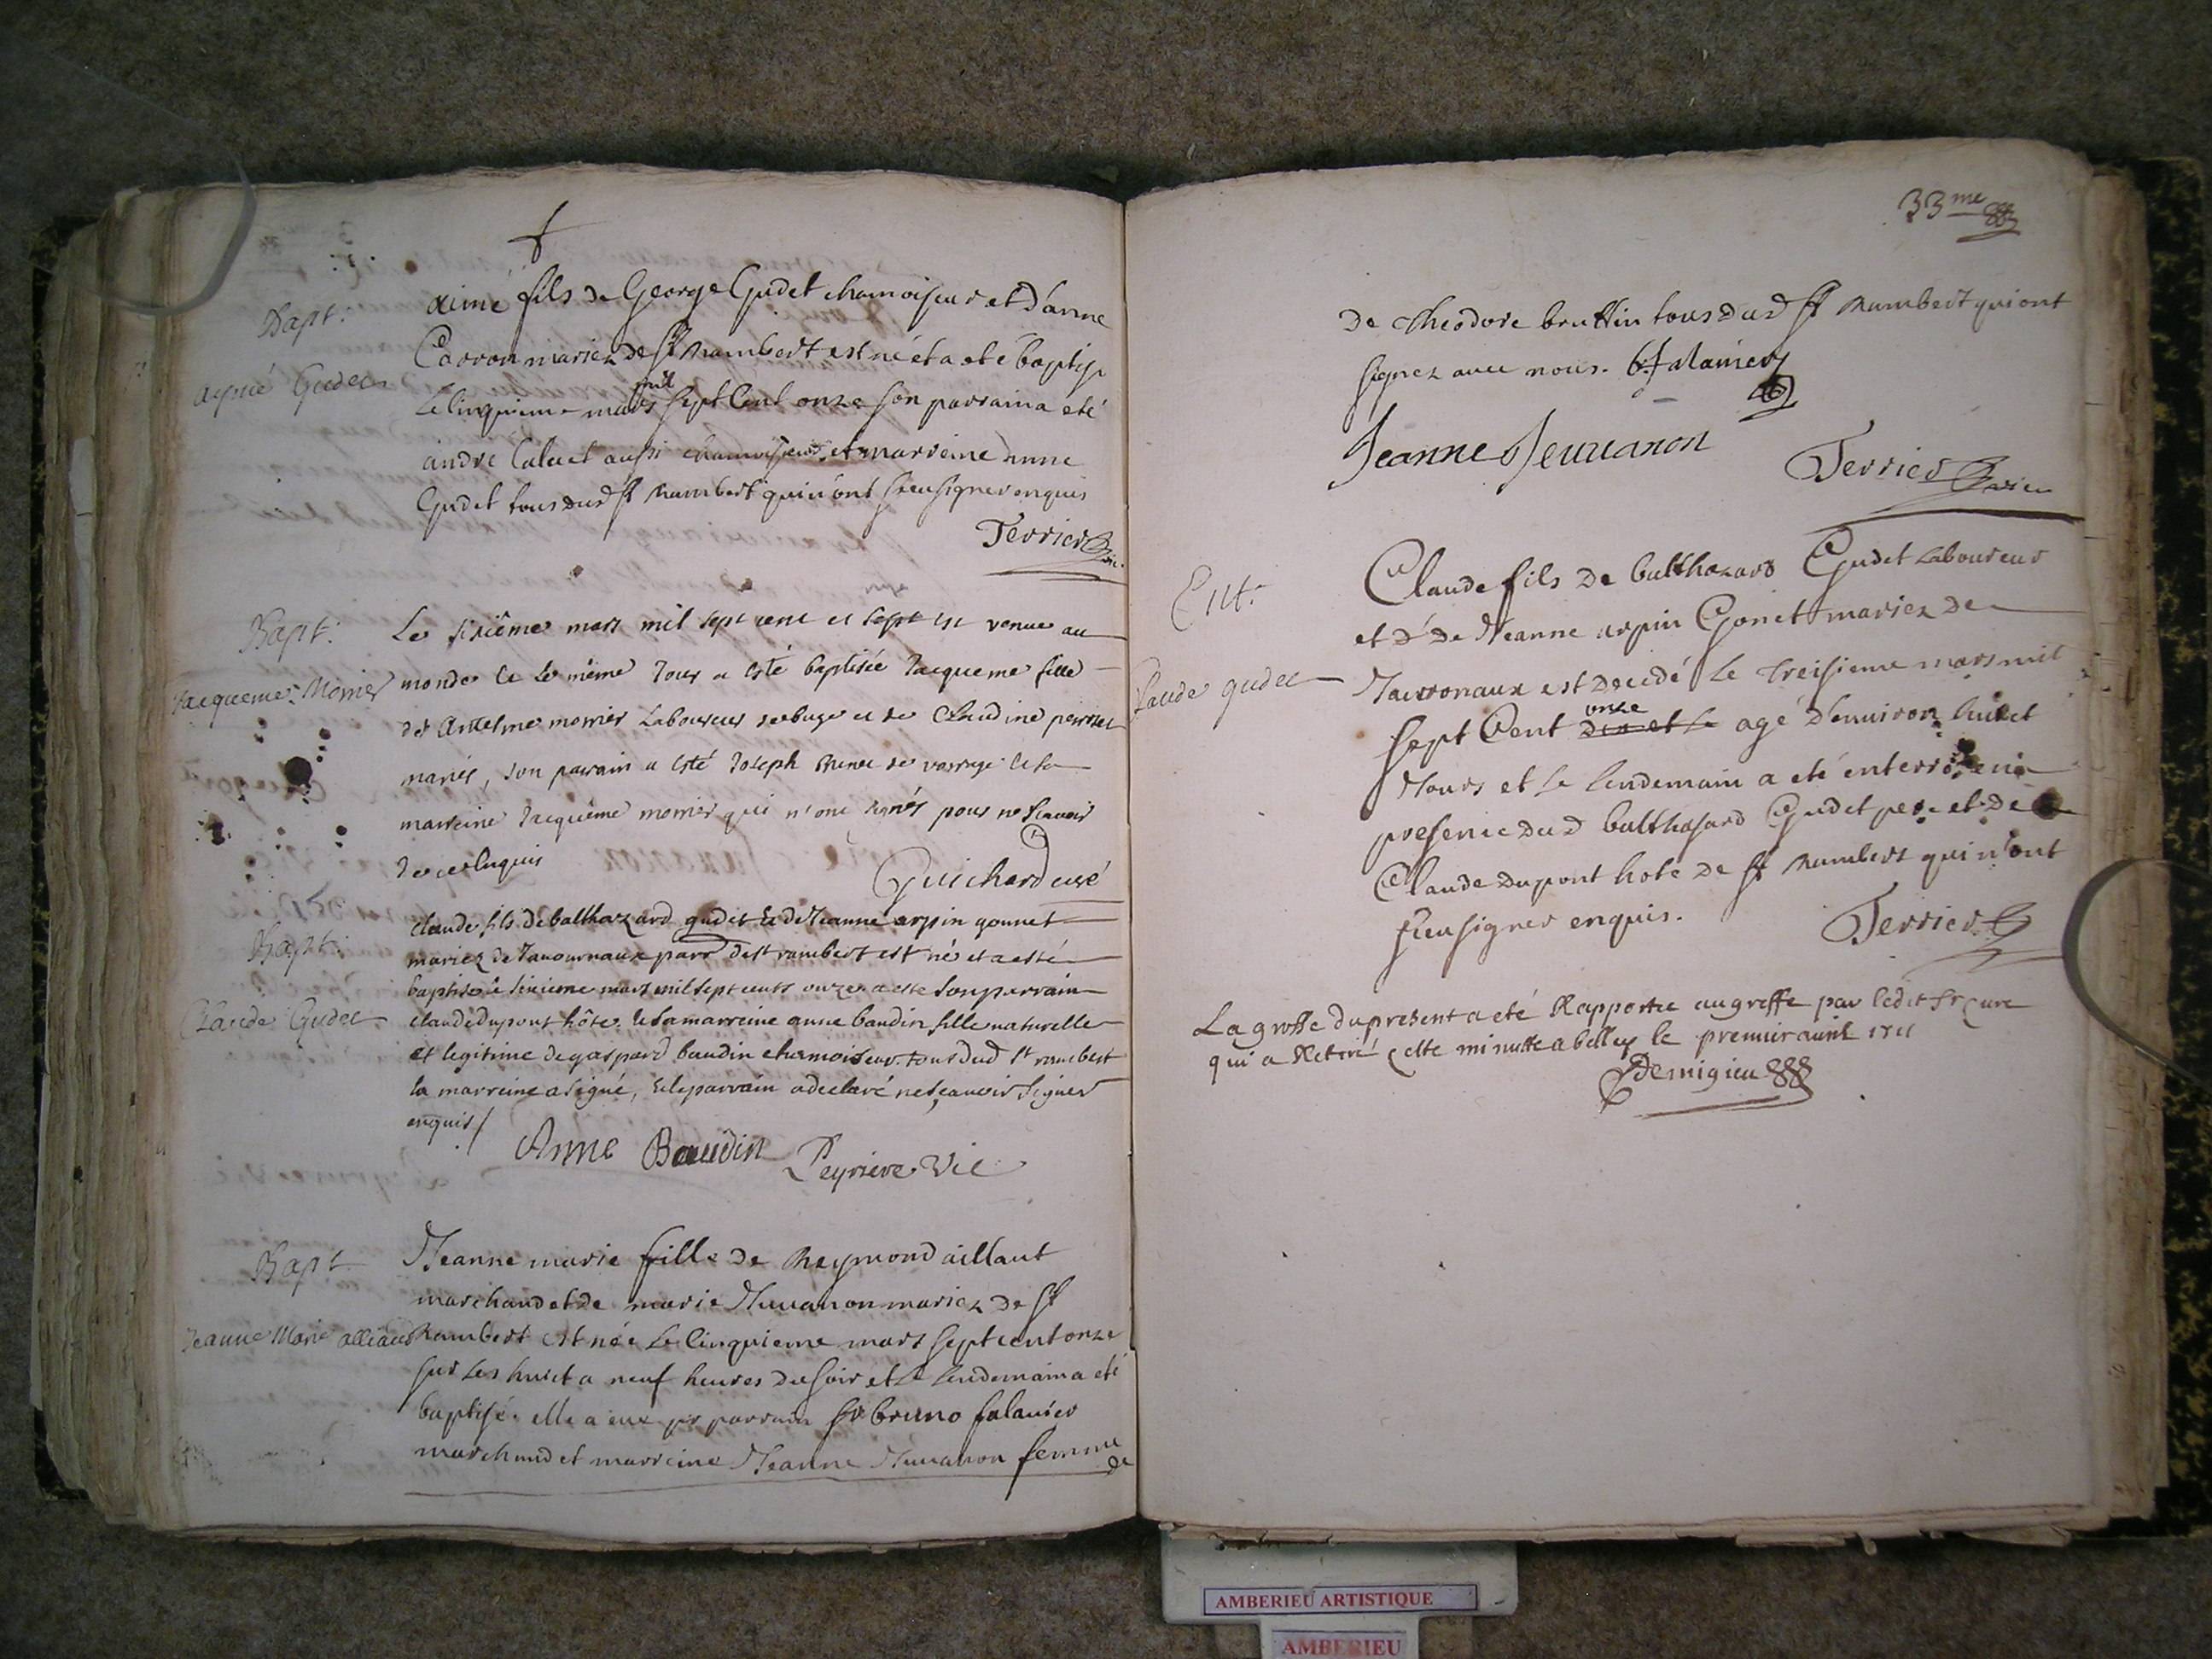 Bapt:
aymé Gudet
aimé fils de George Gudet chamoiseur et d'anne
Carron mariez de St Rambert est né et a eté baptisé
Le cinquieme mars mil sept Cent onze son parrain a eté
andré Caluet aussi chamoiseur et marreine anne
Gudet tous dud St Rambert qui n'ont sceu signer enquis
Terrier vic.
Bapt:
Jacqueme Monier
Le sixiême mars mil sept cent et sept est venue au
monde et le même Jour a esté baptisée Jacqueme fille
de Antelme monier Laboureur et de Claudine
mariés, son parrain a esté Joseph de et sa
marreine Jacquême monier qui n'ont signés pour ne scauoir
de ce enquis
Guichard curé
Bapt:
Claude Gudet
claude fils de balthazard gudet & de Jeanne arpin gonnet
mariez de Jauournaux parr de st rambert est né et a esté
baptisé le sixieme mars mil sept cents onze a esté son parrain
claude dupont hôte & sa marreine anne baudin fille naturelle
et legitime de gaspard baudin chamoiseur tous dud st rambert
la marreine a signé, & le parrain a declaré ne sçauoir signer
enquis /
Anne Baudin Peyriere Vic
Bapt
Jeanne Marie alliaud
Jeanne marie fille de Reymond aillaut
marchand et de marie Juuanon mariez de St
Rambert est née Le cinquieme mars sept cent onze
sur les huict a neuf heures du soir et le lendemain a eté
baptisé. elle a eue pr parrain Sr bruno falauier
marchand et marreine Jeanne Juuanon femme
de
33me
de theodore bruttin tous dud St Rambert qui ont
signez auec nous.
Jeanne Jeuuanon
Terrier vic
Ent.
Claude gudet
Claude fils de balthazard Gudet Laboureur
et d de Jeanne arpin Gonet mariez de
Jauronaux est decedé le treisieme mars mil
onze
sept Cent dix et le agé d'enuiron huict
Jours et le lendemain a eté enterré en
presence dud balthasard Gudet pere et de
Claude dupont hote de St Rambert qui n'ont
sceu signer enquis.
Terrier
La grosse du present a eté Rapportée au greffe par ledit Sr curé
qui a Retiré cette minutte a belley le premier auril 1711
Demigieu
AMBERIEU ARTISTIQUE
AMBERIEU